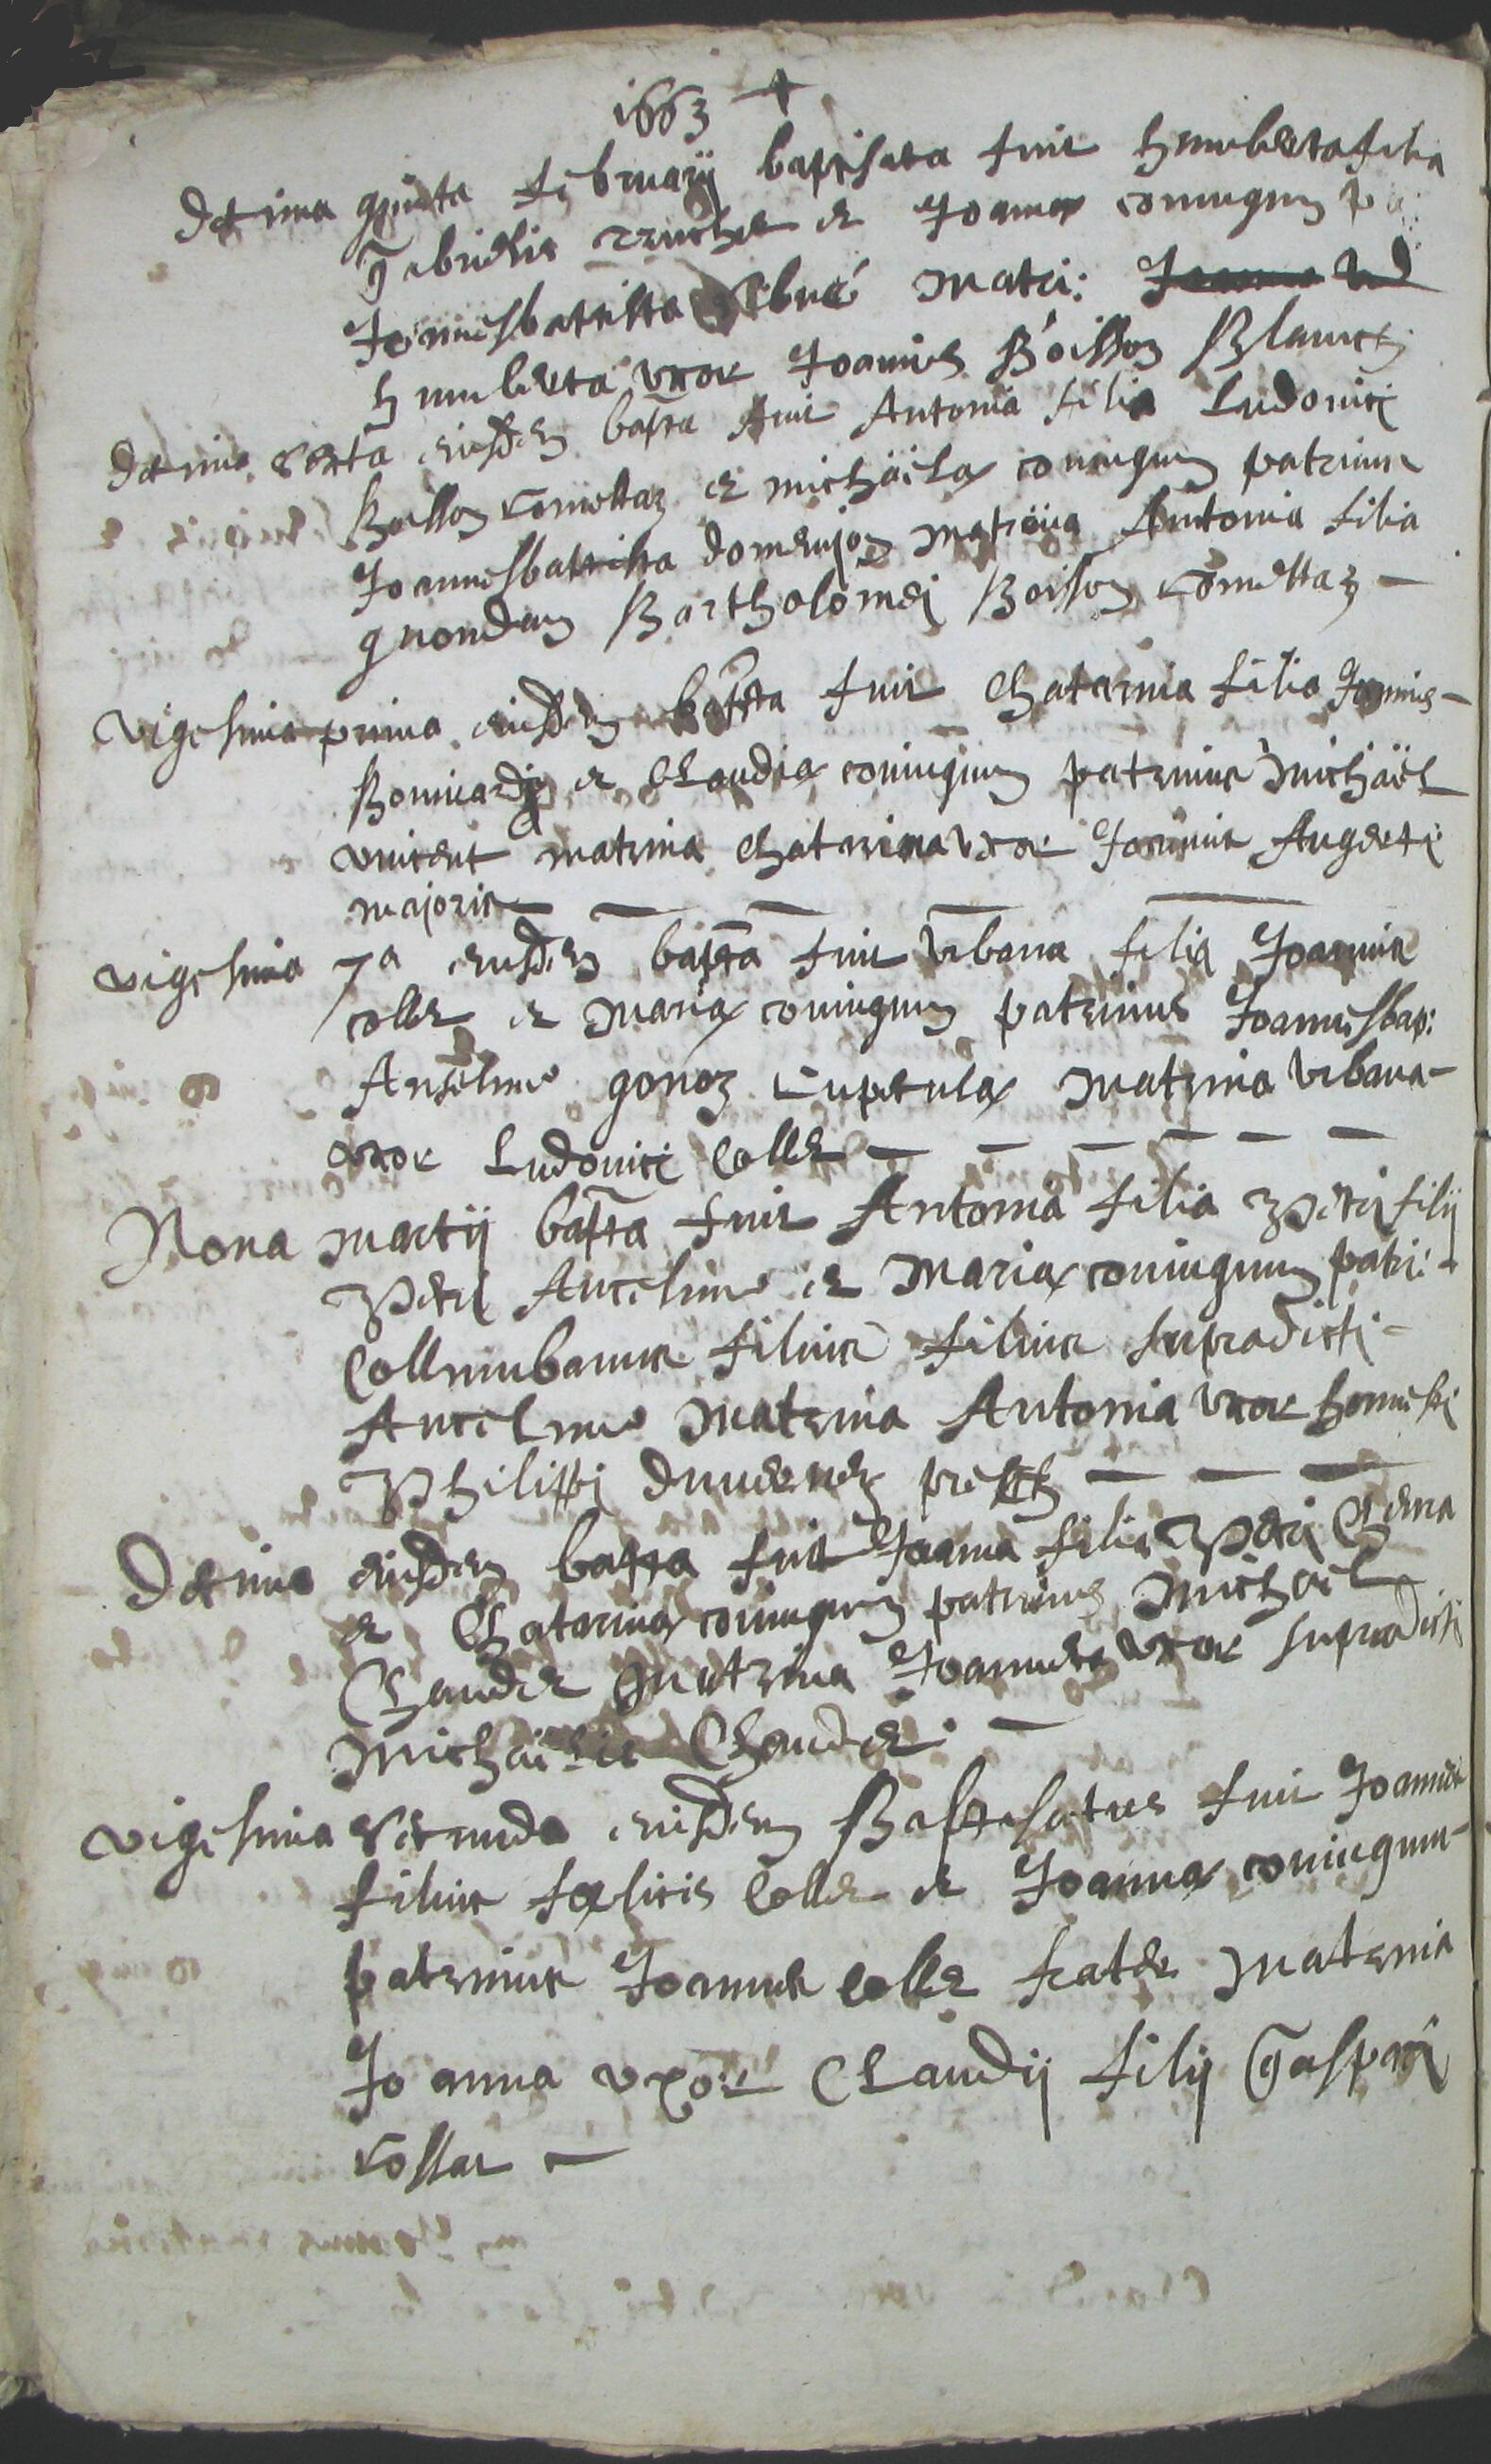 1663
decima quinta februarij baptisata fuit humberta filia
Gabrielis et Joannæ coniugum pa
Joannesbattista matri:
humberta uxor Joannis Boisson Blanch
decima sexta eiusdem bapta fuit Antonia filia Ludovici
Boisson Cornettaz et michäelæ coniugum patrinus
Joannesbattista domenjoz matrina Antonia filia
quondam Bartholomei Boisson Cornettaz
vigesima prima eiusdem bapta fuit Chatarina filia Joannis
et Claudiæ coniugum patrinus michäel
vincent matrina Chatarina uxor Joannis Augerti
majoris
vigesima 7a eiusdem bapta fuit Urbana filia Joannis
colle et Mariæ coniugum patrinus Joannesbap:
Anselme gonoz matrina Urbana
uxor Ludovici Colle
Nona martij bapta fuit Antonia filia Petri filij
Petri Ancelme et Mariæ coniugum patri:
Collumbanus filius filius supradicti
Ancelme matrina Antonia uxor honesti
Philippi
Decima eiusdem bapta fuit Joanna filia Petri
et Chatarinæ coniugum patrinus Michael
Chaude matrina uxor supradicti
Michäelis Chaude
vigesima secunda eiusdem Baptisatus fuit Joannes
filius fœlicis Colle et Joannæ coniugum
patrinus Joannes Colle frater matrina
Joanna uxor Claudij filij Gaspari